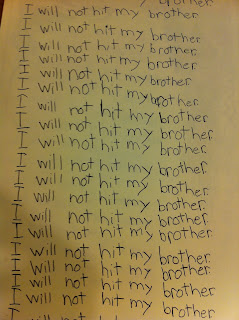 my brother
I will not hit my brother.
I will not hit my brother.
I will not hit my brother
I will not hit my brother
I will not hit my brother.
I will not hit my brother
I will not hit my brother.
I will not hit my brother.
I will not hit my brother.
I will not hit my brother.
I will not hit my brother.
I will not hit my brother.
I will not hit my brother.
I will not hit my brother.
I will not hit my brother.
I will not hit my brother.
I will not hit my brother
will not hit my